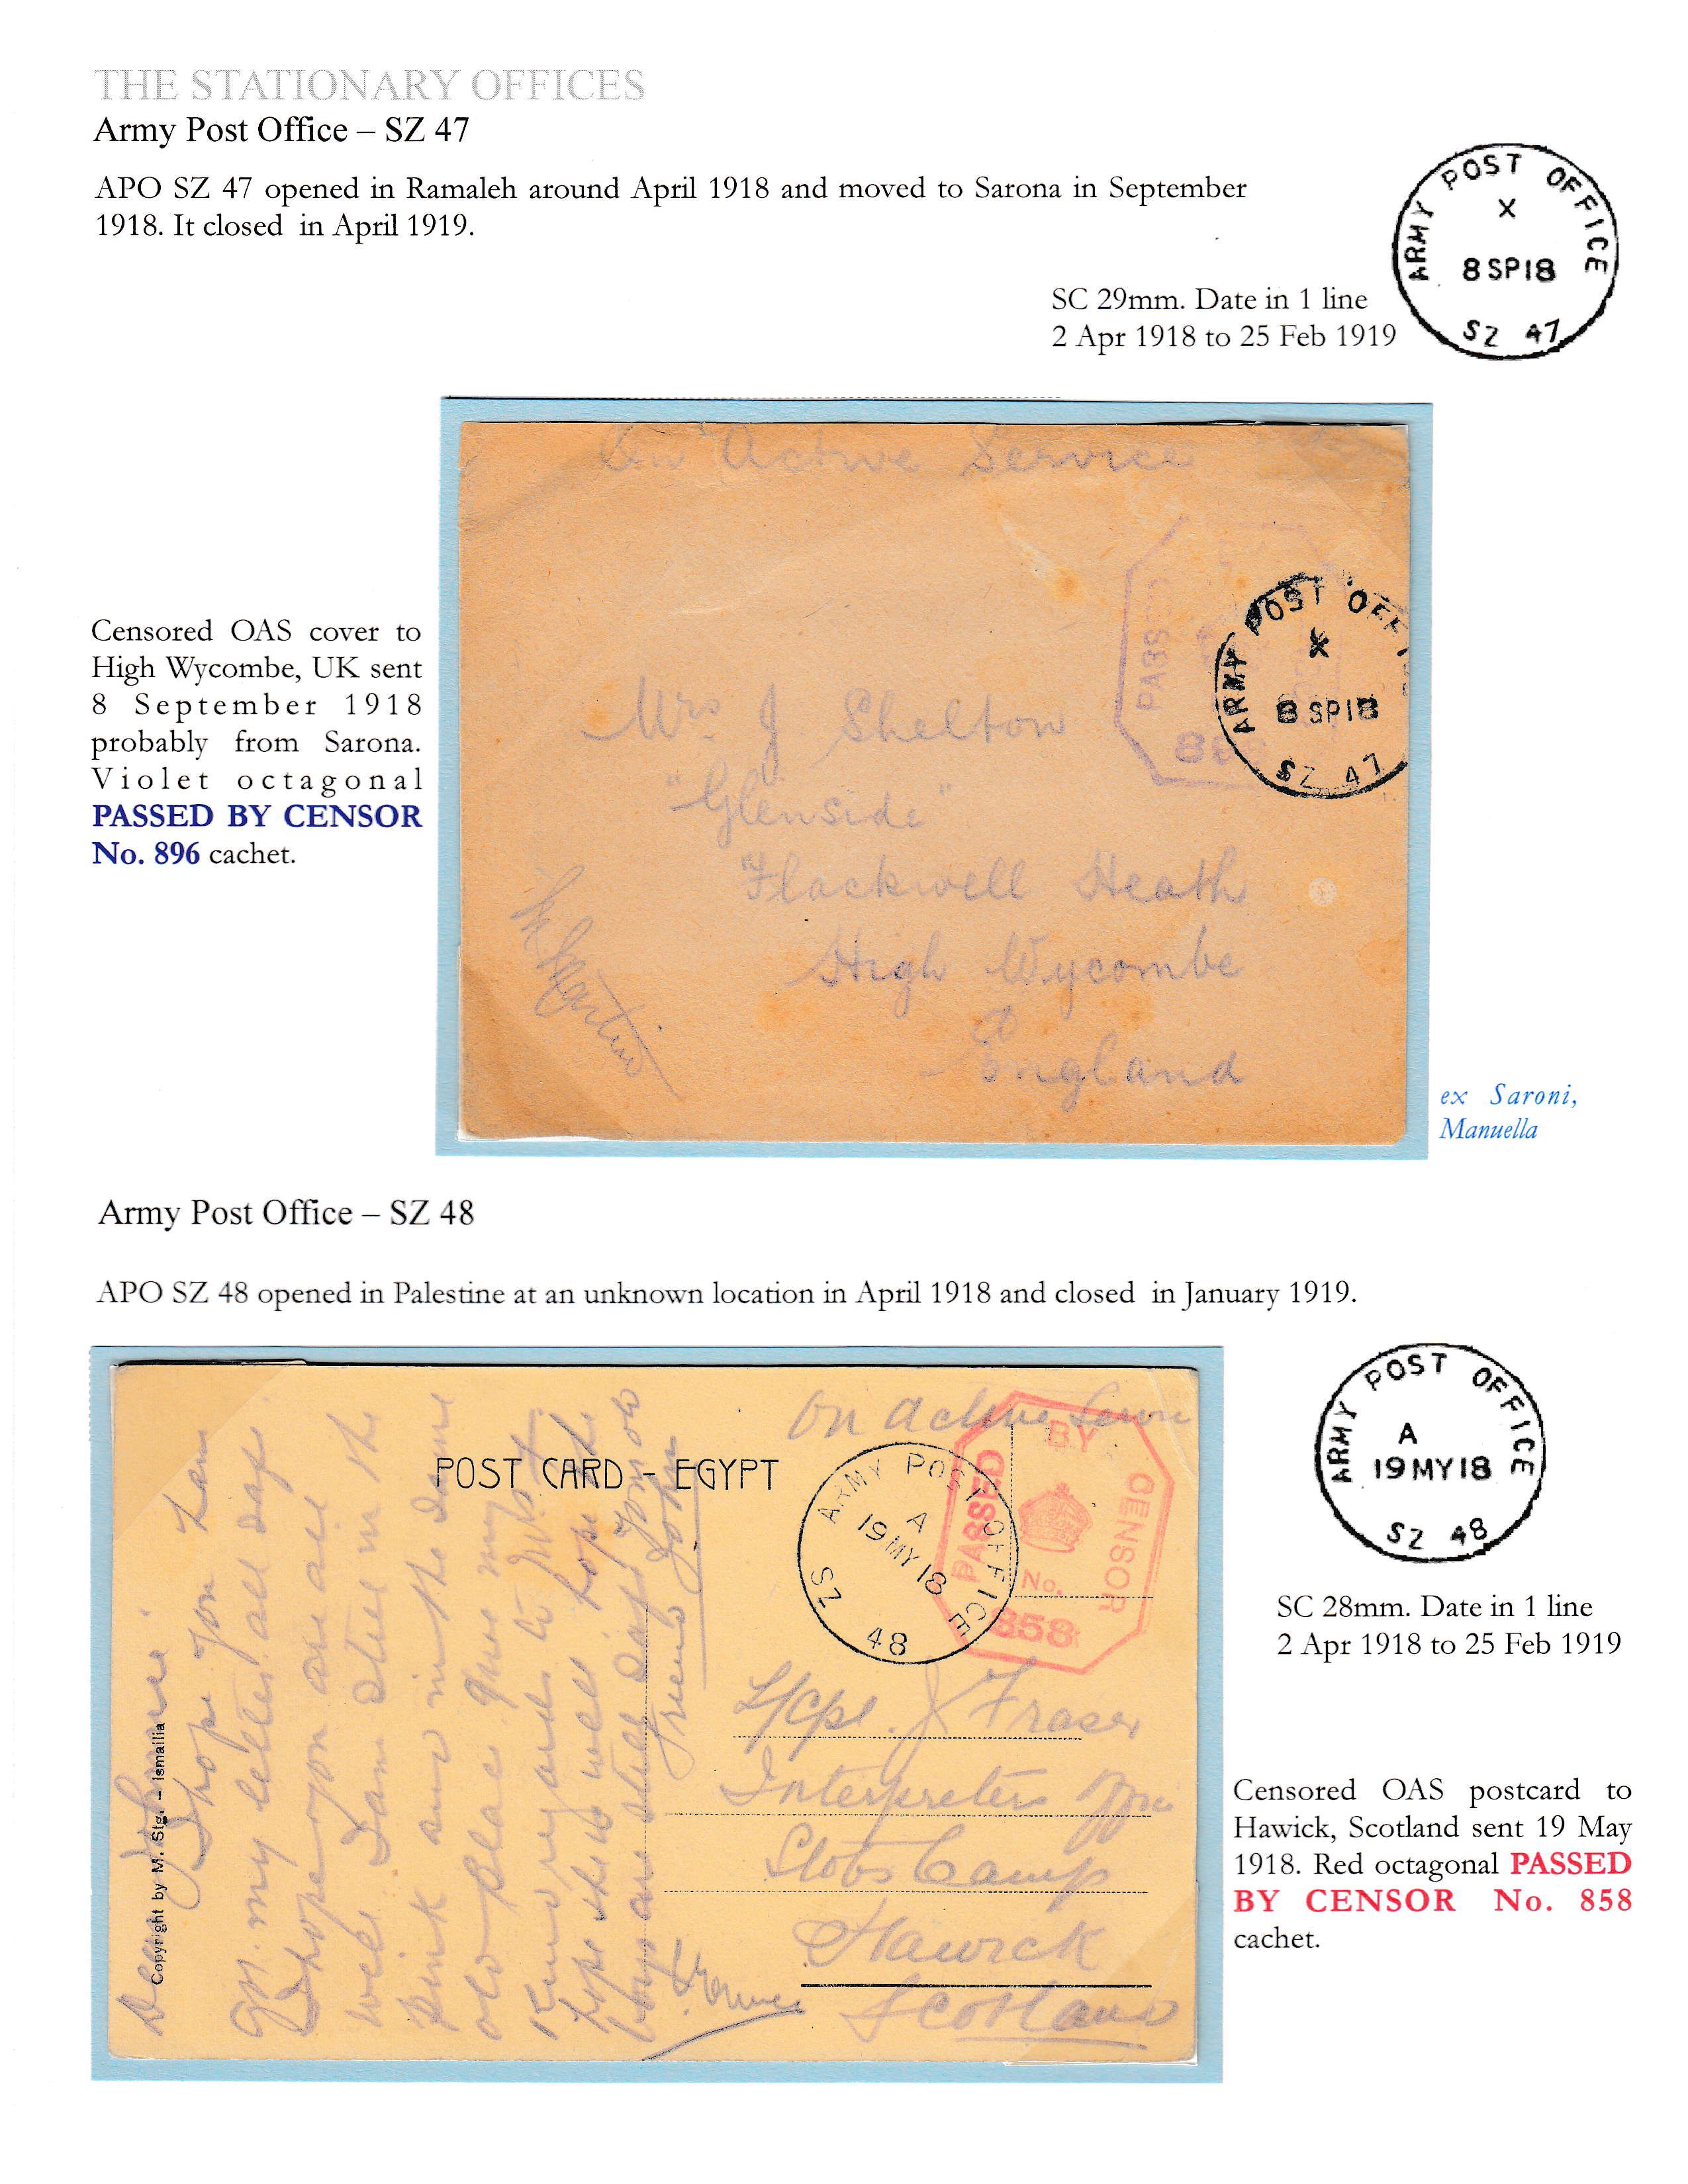 THE STATIONARY OFFICES
Army Post Office – SZ 47
APO SZ 47 opened in Ramaleh around April 1918 and moved to Sarona in September
1918. It closed in April 1919.
ARMY POST OFFICE
X
8 SP 18
SZ 47
SC 29mm. Date in 1 line
2 Apr 1918 to 25 Feb 1919
On Active Service
PASSED
896
ARMY POST OFFI
X
8 SP 18
SZ 47
Mrs J Shelton
"Glenside"
Flackwell Heath
High Wycombe
England
Martin
Censored OAS cover to
High Wycombe, UK sent
8 September 1918
probably from Sarona.
Violet octagonal
PASSED BY CENSOR
No. 896 cachet.
ex Saroni,
Manuella
Army Post Office – SZ 48
APO SZ 48 opened in Palestine at an unknown location in April 1918 and closed in January 1919.
On Active
POST CARD - EGYPT
ARMY POST OFFICE
A
19 MY 18
SZ 48
PASSED BY CENSOR
No.
858
L/Cpl. J Fraser
Interpreters
Stobs Camp
Hawick
Scotland
Copyright by M. Stg. – Ismailia
Dear Johnnie
I hope you
my letter all
I hope you are all
well I am still in the
same
old place Give my
Kind regards to
hope she is well hope the
boys are still
friend John
ARMY POST OFFICE
A
19 MY 18
SZ 48
SC 28mm. Date in 1 line
2 Apr 1918 to 25 Feb 1919
Censored OAS postcard to
Hawick, Scotland sent 19 May
1918. Red octagonal PASSED
BY CENSOR No. 858
cachet.